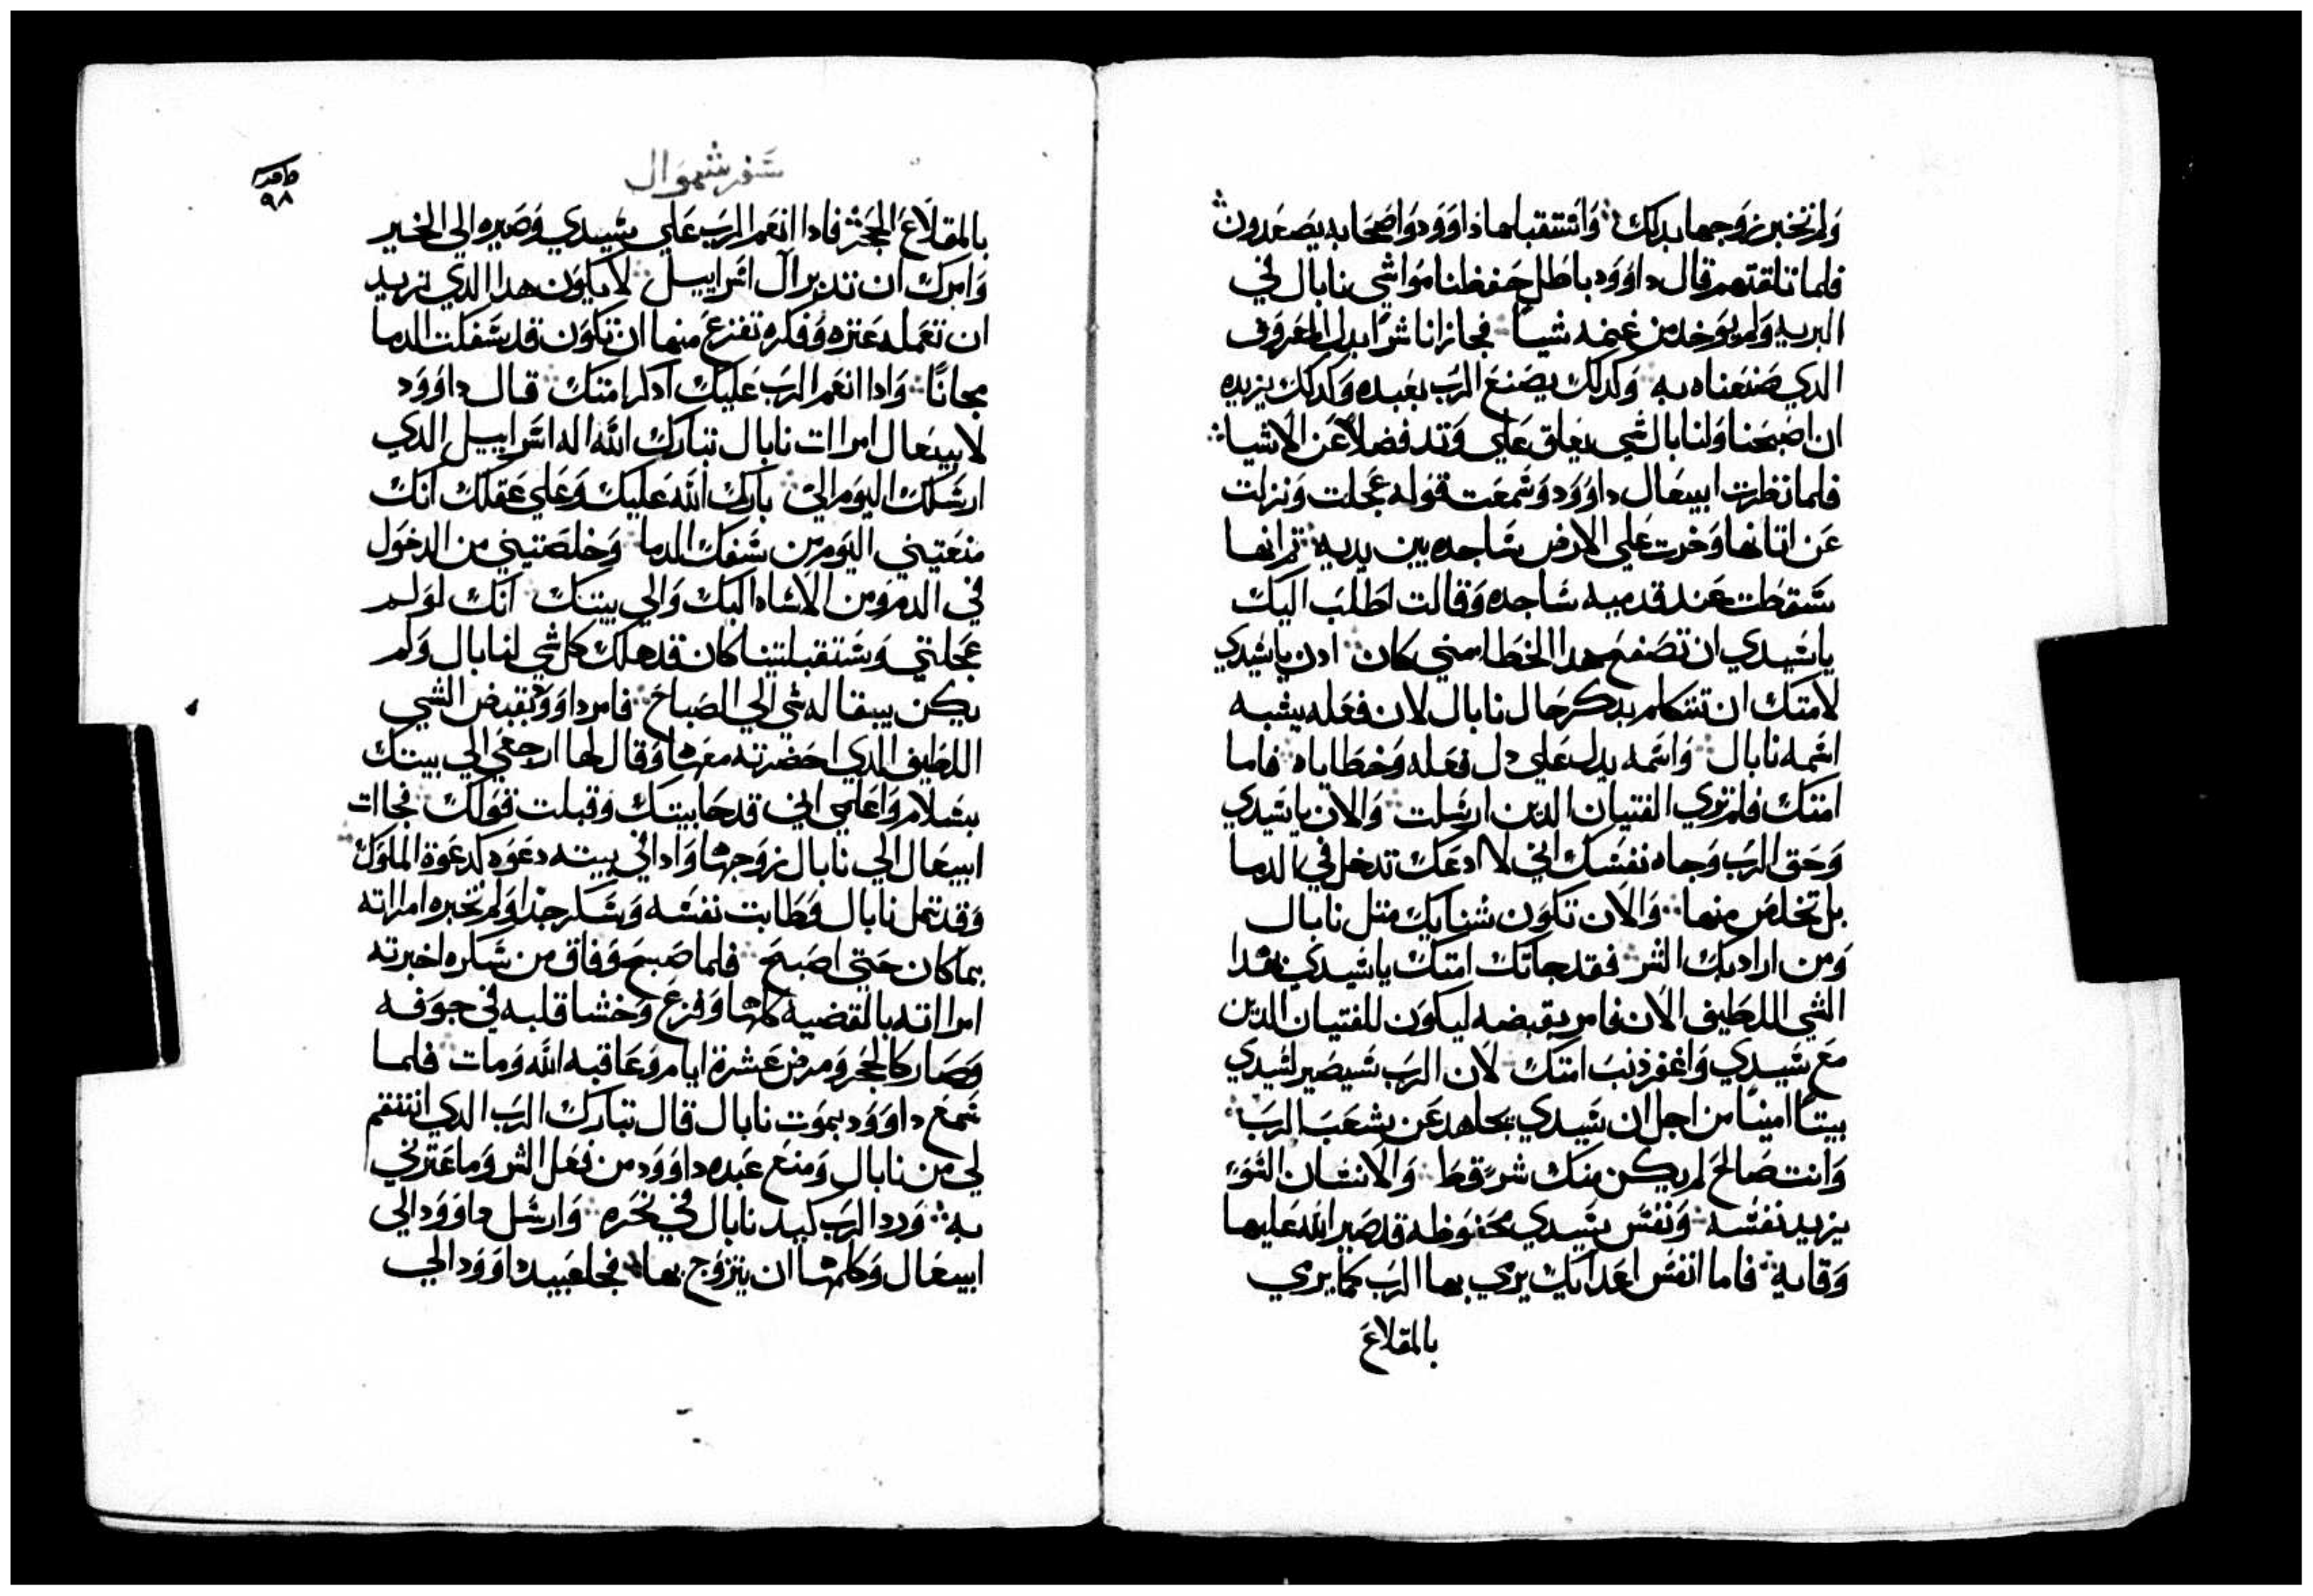 ولم تخبر زوجها بدلك واستقبلها داوود واصحابه يصعدون
فلما تلقتهم قال داوود باطل حفظنا مواشي نابال في
البريه ولم يوخد من غنمه شيا فجازانا شرا بدل المعروف
الدي صنعناه به وكدلك يصنع الرب بعبده وكدلك يزيده
ان اصبحنا ولنابال شي يعلق علي وتد فضلا عن الاشيا
فلما نظرت ابيغال داوود وسمعت قوله عجلت ونزلت
عن اتانها وخرت علي الارض ساجده بين يديه تم انها
سقطت عند قدميه ساجده وقالت اطلب اليك
يا سيدي ان تصفح هدا الخطا مني كان ادن يا سيدي
لامتك ان تتكلم بدكر حال نابال لان فعله يشبه
اسمه نابال واسمه يدل علي دل فعله وخطاياه فاما
امتك فلم تري الفتيان الدين ارسلت والان يا سيدي
وحق الرب وجاه نفسك اني لا ادعك تدخل في الدما
بل تخلص منها والان تكون شنايك متل نابال
ومن اراد بك الشر فقد جاتك امتك يا سيدي بهدا
الشي اللطيف الان فامر بقبضه ليكون للفتيان الدين
مع سيدي واغفر ذنب امتك لان الرب سيصير لسيدي
بيتا امينا من اجل ان سيدي يجاهد عن شعب الرب
وانت صالح لم يكن منك شر قط والانسان السو
يزيد نفسه ونفس سيدي محفوظه قد صير الله عليها
وقاية فاما انفس اعدايك يرمي بها الرب كما يرمي
بالمقلاع
سفر شموال
٩٨
بالمقلاع الحجر فادا انعم الرب علي سيدي وصيره الي الخير
وامرك ان تدبر ال اسراييل لا يكون هدا الدي تريد
ان تعمله عتره وفكره تفزع منها ان تكون قد سفكت الدما
مجانا وادا انعم الرب عليك ادكر امتك قال داوود
لابيغال امرات نابال تبارك الله اله اسراييل الدي
ارسلك اليوم الي بارك الله عليك وعلي عقلك انك
منعتيني اليوم من سفك الدما وخلصتيني من الدخول
في الدم ومن الاساه اليك والي بيتك انك لو لم
عجلتي وستقبلتينا كان قد هلك كل شي لنابال ولم
يكن يبقا له شي الي الصباح فامر داوود بقبض الشي
اللطيف الدي احضرته معها وقال لها ارجعي الي بيتك
بسلام واعلمي اني قد حابيتك وقبلت قولك فجات
ابيغال الي نابال زوجها وادا في بيته دعوه كدعوة الملوك
وقد تمل نابال وطابت نفسه وسكر جدا ولم تخبره امراته
بما كان حتي اصبح فلما صبح وفاق من سكره اخبرته
امراته بالقضية كلها وفزع وخشا قلبه في جوفه
وصار كالحجر ومرض عشرة ايام وعاقبه الله ومات فلما
سمع داوود بموت نابال قال تبارك الرب الدي انتقم
لي من نابال ومنع عبده داوود من فعل الشر وما عترني
به ورد الرب كيد نابال في نحره وارسل داوود الي
ابيغال وكلمها ان يتزوج بها فجا عبيد داوود الي